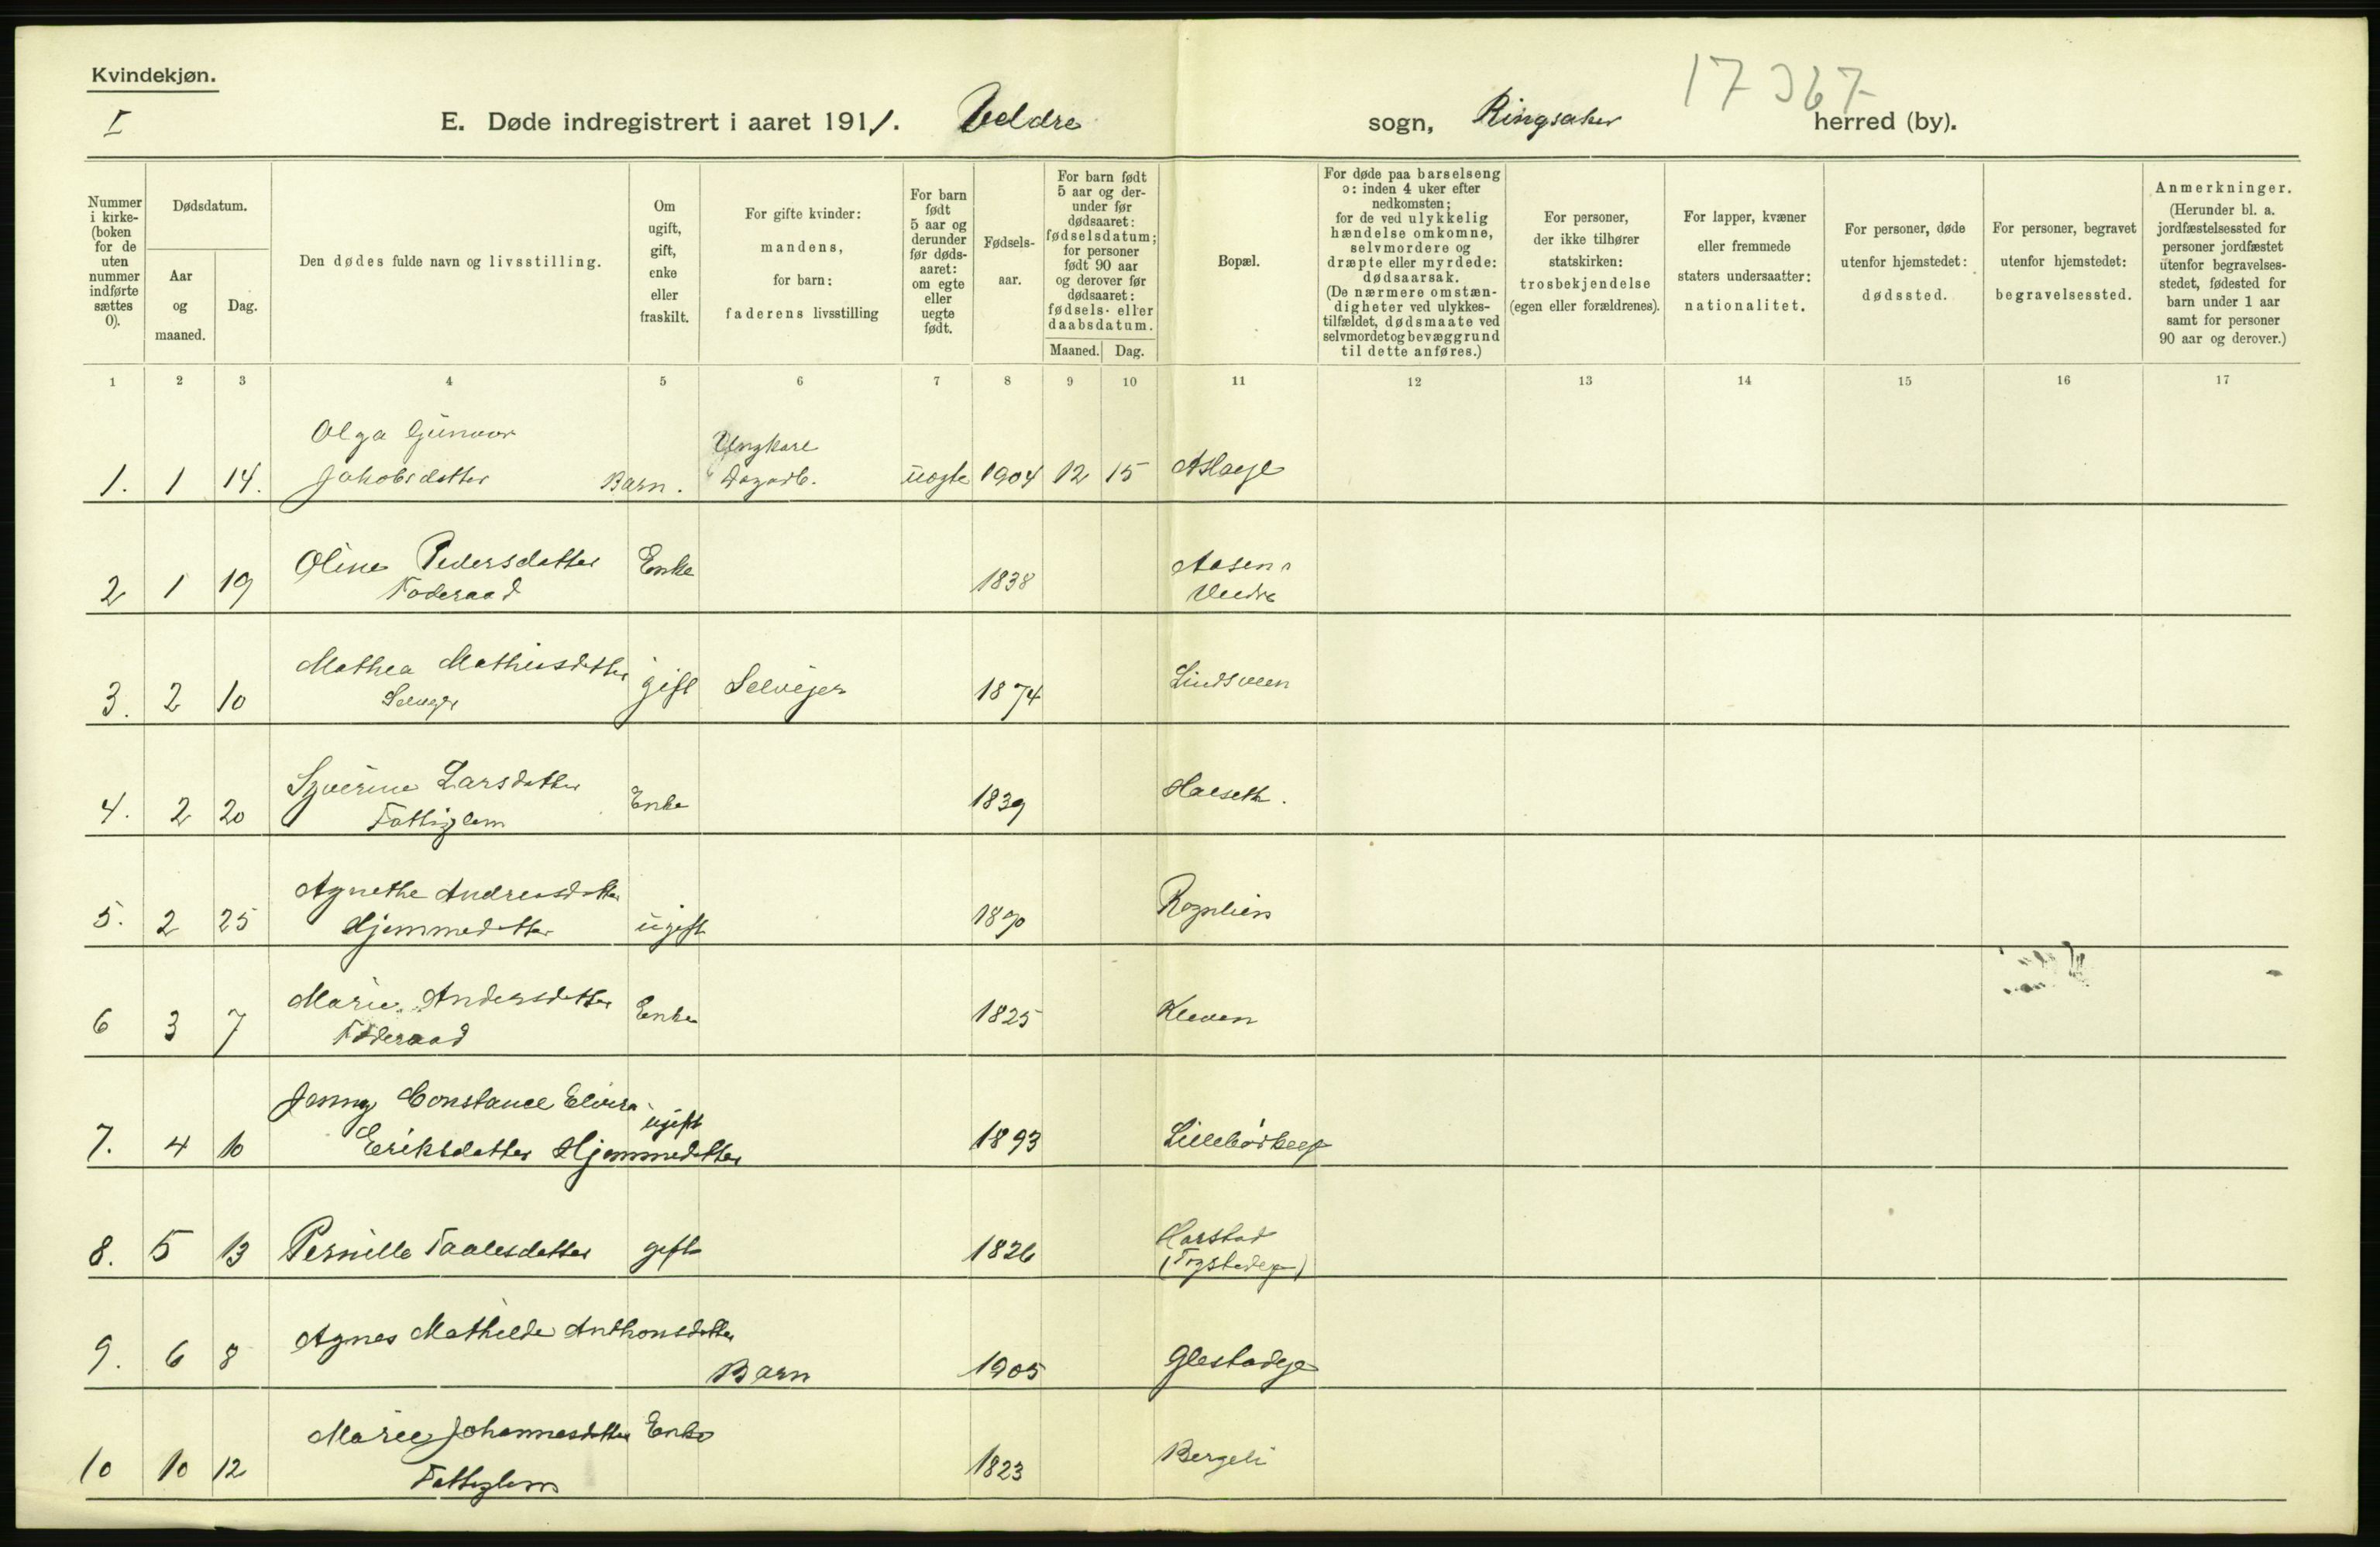 Kvindekjøn.
I
17 367
E. Døde indregistrert i aaret 1911. Veldre sogn, Ringsaker herred (by).
Nummer i kirke- (boken for de uten nummer indførte sættes 0).
Dødsdatum.
Aar og maaned.
Dag.
Den dødes fulde navn og livsstilling.
Om ugift, gift, enke eller fraskilt.
For gifte kvinder: mandens, for barn: faderens livsstilling
For barn født 5 aar og derunder før døds- aaret: om egte eller uegte født.
Fødsels- aar.
For barn født 5 aar og der- under før dødsaaret: fødselsdatum; for personer født 90 aar og derover før dødsaaret: fødsels- eller daabsdatum.
Maaned. Dag.
Bopæl.
For døde paa barselseng ɔ: inden 4 uker efter nedkomsten; for de ved ulykkelig hændelse omkomne, selvmordere og dræpte eller myrdede: dødsaarsak. (De nærmere omstæn- digheter ved ulykkes- tilfældet, dødsmaate ved selvmordet og bevæggrund til dette anføres.)
For personer, der ikke tilhører statskirken: trosbekjendelse (egen eller forældrenes).
For lapper, kvæner eller fremmede staters undersaatter: nationalitet.
For personer, døde utenfor hjemstedet: dødssted.
For personer, begravet utenfor hjemstedet: begravelsessted.
Anmerkninger. (Herunder bl. a. jordfæstelsessted for personer jordfæstet utenfor begravelses- stedet, fødested for barn under 1 aar samt for personer 90 aar og derover.)
1 2 3 4 5 6 7 8 9 10 11 12 13 14 15 16 17
Olga Gunvor Ungkarl
1. 1 14. Jakobsdatter Barn. Dagarb. uegte 1904 12 15
Oline Pedersdatter Enke Aasen
2 1 19 Føderaad 1838 Veldre
Mathea Mathiasdatter gift Selveier Lindsveen
3. 2 10 Selveier 1874
Syverine Larsdatter Enke Halseth.
4. 2 20 Fattiglem 1839
Agnethe Andreasdatter Rognlien
5. 2 25 Hjemmedatter ugift 1890
Marie Andersdatter Enke Kleven
6 3 7 Føderaad 1825
Jenny Constance Elvira ugift
7. 4 10 Eriksdatter Hjemmedatter 1893
Harstad
8. 5 13 Pernille Paalesdatter gift 1826
Agnes Mathilde Anthonsdatter
9. 6 8 Barn 1905 Glestadeje
Marie Johannesdatter Enke Bergeli
10 10 12 Fattiglem 1823